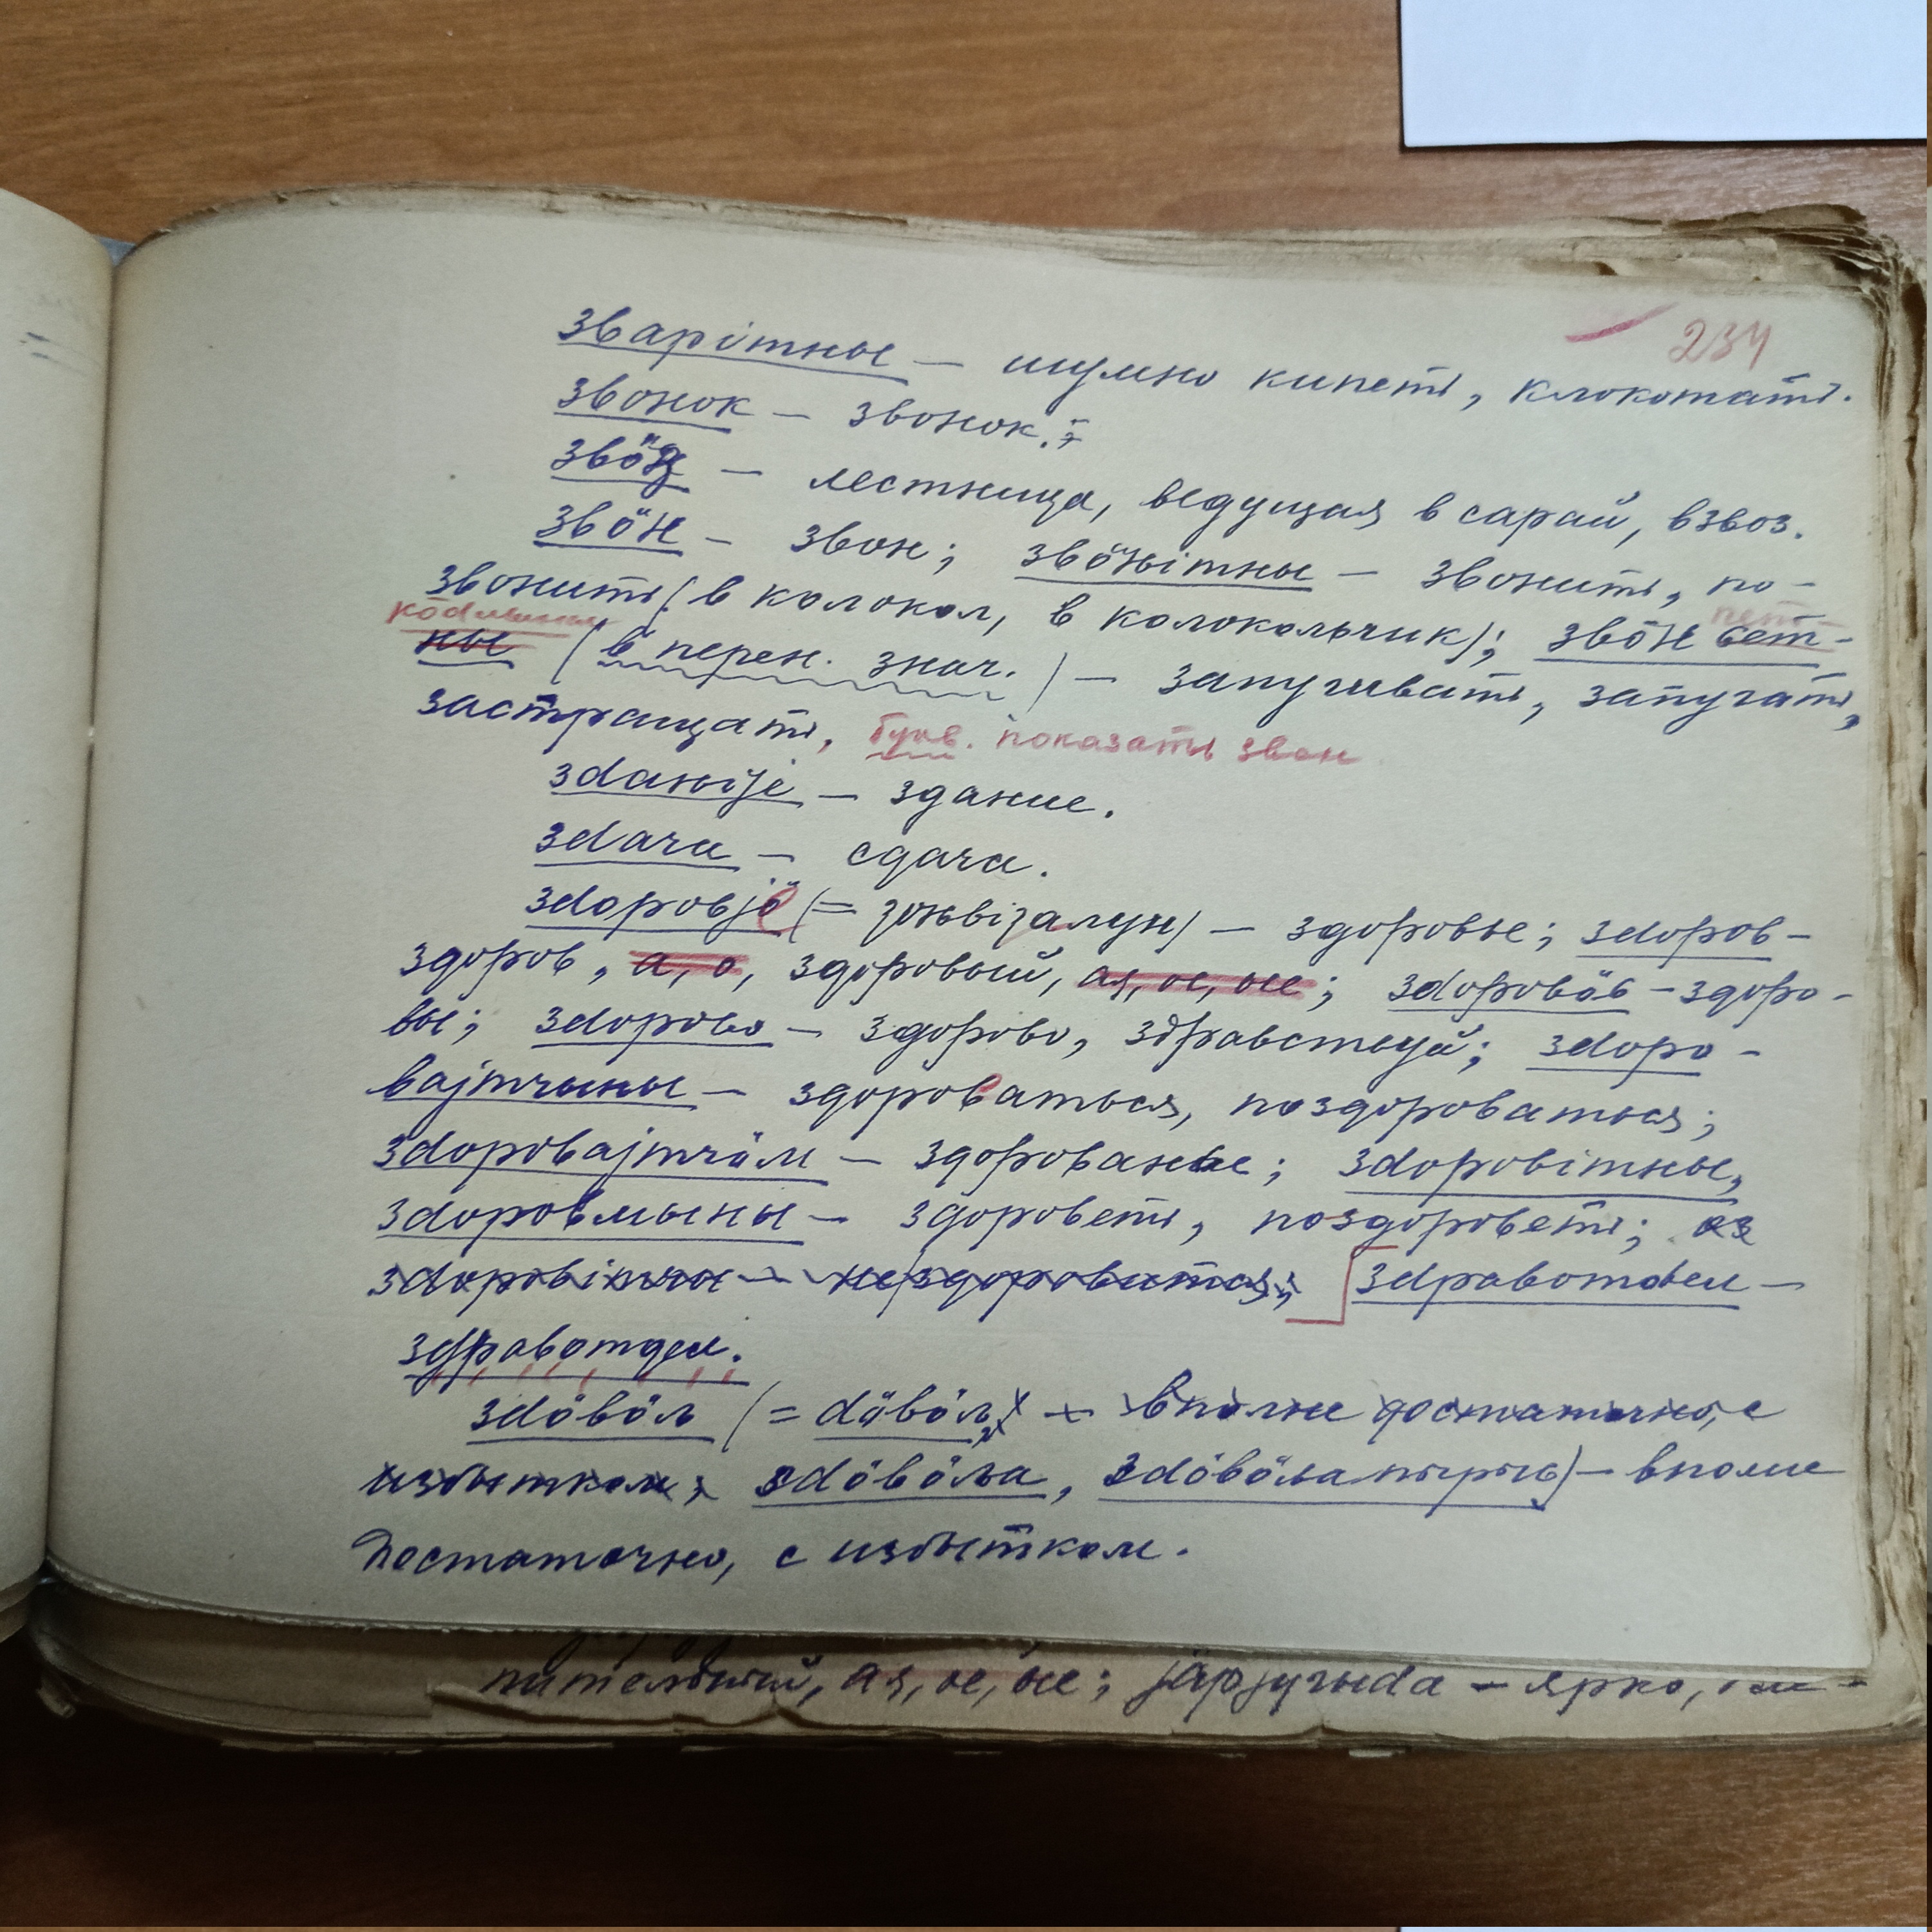 234
зварітны — шумно кипеть, клокотать.
звонок — звонок.
звӧз — лестница, ведущая в сарай, взвоз.
звӧн — звон; звӧњітны — звонить, по-
звонить (в колокол, в колокольчик); звӧн сет-
ны (в перен. знач.) — запугивать, запугать,
застращать, букв. показать звон
зdањијe — здание.
зdача — сдача.
зdоровjӧ (= зоњвізалун) — здоровье; зdоров —
здоров, а, о, здоровый, ая, ое, ые; зdоровӧс — здоро-
вы; зdорово — здорово, здравствуй; зdоро-
вајтчыны — здороваться, поздороваться;
зdоровајтчӧм — здорованье; зdоровітны,
зdоровмыны — здороветь, поздороветь; аз
зdоровітчы — нездоровится; зdравотdел —
здравотдел.
зdӧвӧљ (= dӧвӧљ, — вполне достаточно, с
избытком; зdӧвӧљa, зdӧвӧљaпырыс) — вполне
достаточно, с избытком.
пительный, ая, ое, ые; јарјугыdа — ярко,